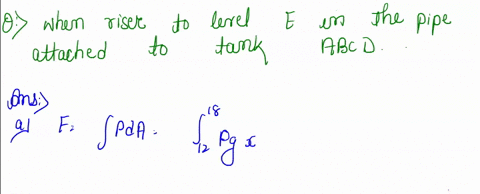 Q:> when riser to level E in the pipe
attached to tank ABCD.
Ans:>
a) F = ∫PdA = ∫₁₂¹⁸ ρg x